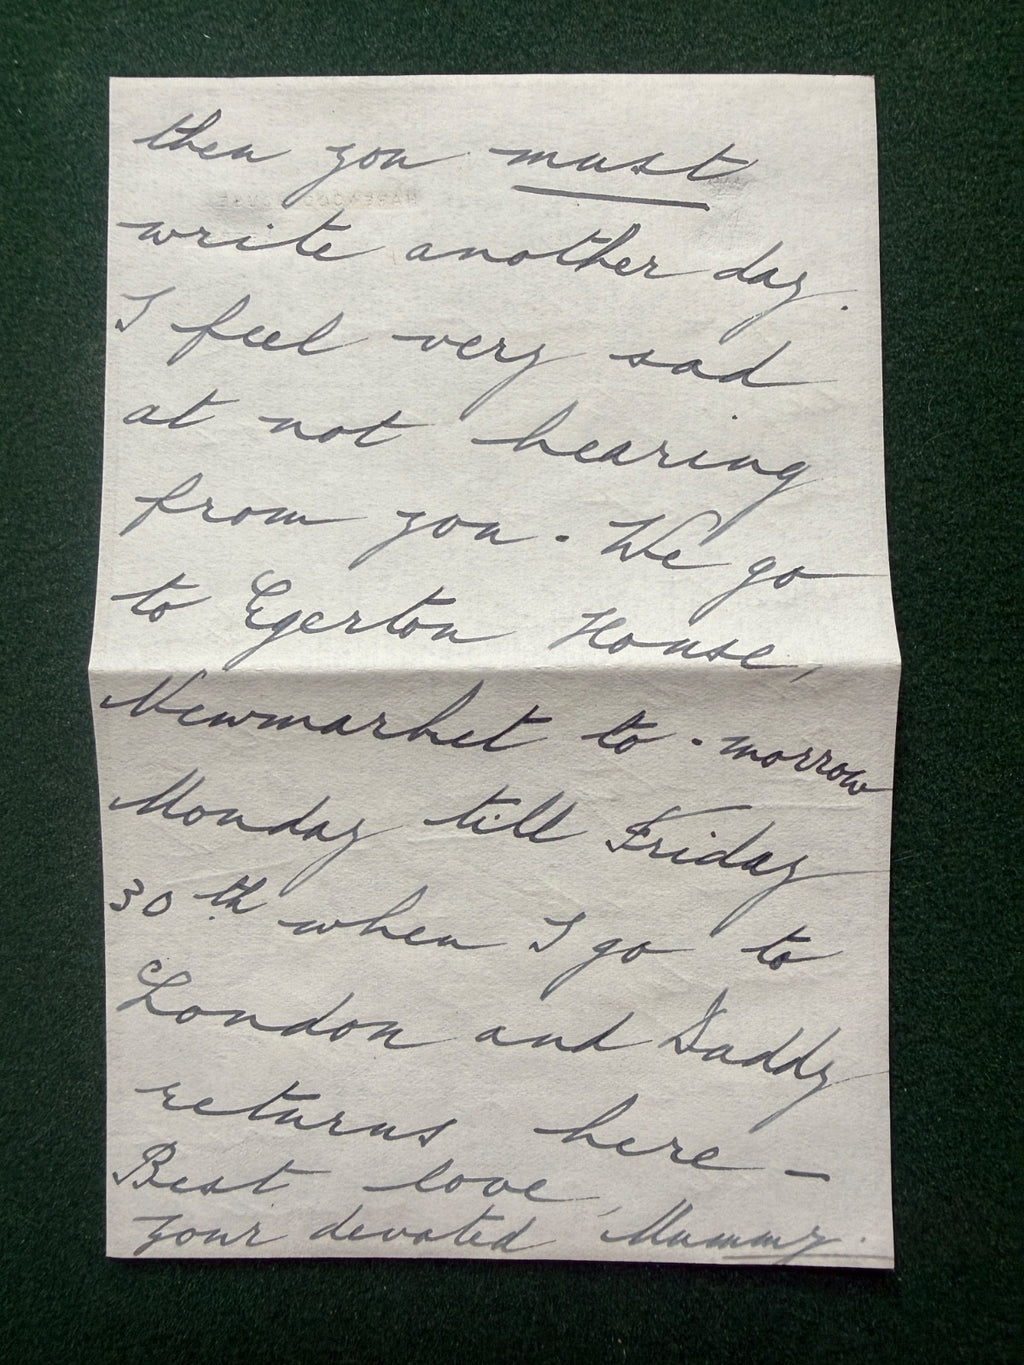 then you must
write another day.
I feel very sad
at not hearing
from you. We go
to Egerton House,
Newmarket to-morrow
Monday till Friday
30th when I go to
London and Daddy
returns here –
Best love,
your devoted Mummy.